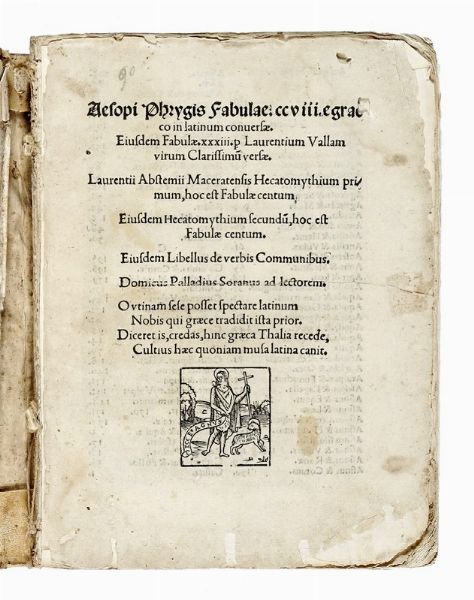 90
Aesopi Phrygis Fabulae: ccviii. e græ
co in latinum conversæ.
Eiusdem Fabulæ. xxxiii. p Laurentium Vallam
virum Clarissimū versæ.
Laurentii Abstemii Maceratensis Hecatomythium pri/
mum, hoc est Fabulæ centum,
Eiusdem Hecatomythium secundū, hoc est
Fabulæ centum.
Eiusdem Libellus de verbis Communibus.
Domicus Palladius Soranus ad lectorem.
O vtinam sese posset spectare latinum
Nobis qui græce tradidit ista prior.
Diceret is, credas, hinc græca Thalia recede,
Cultius hæc quoniam musa latina canit.